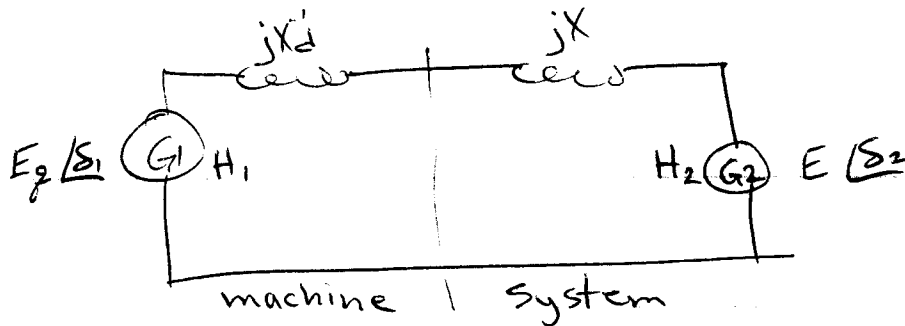 jX'd jX
Eg ∠δ1 G1 H1 H2 G2 E ∠δ2
machine | system